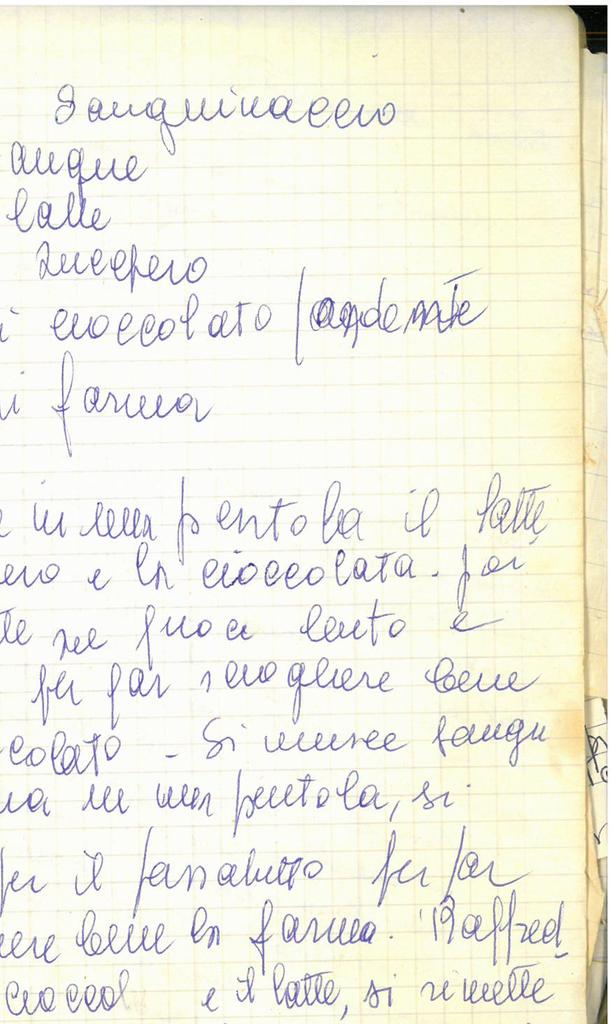 Sanguinaccio
angue
latte
zucchero
i cioccolato fondente
i farina
e in una pentola il latte,
ero e la cioccolata. poi
te sul fuoco lento e
per far sciogliere bene
colato - Si unisce sangu
na in una pentola, si
per il passatutto per far
ere bene la farina. Raffred_
cioccol e il latte, si rimette